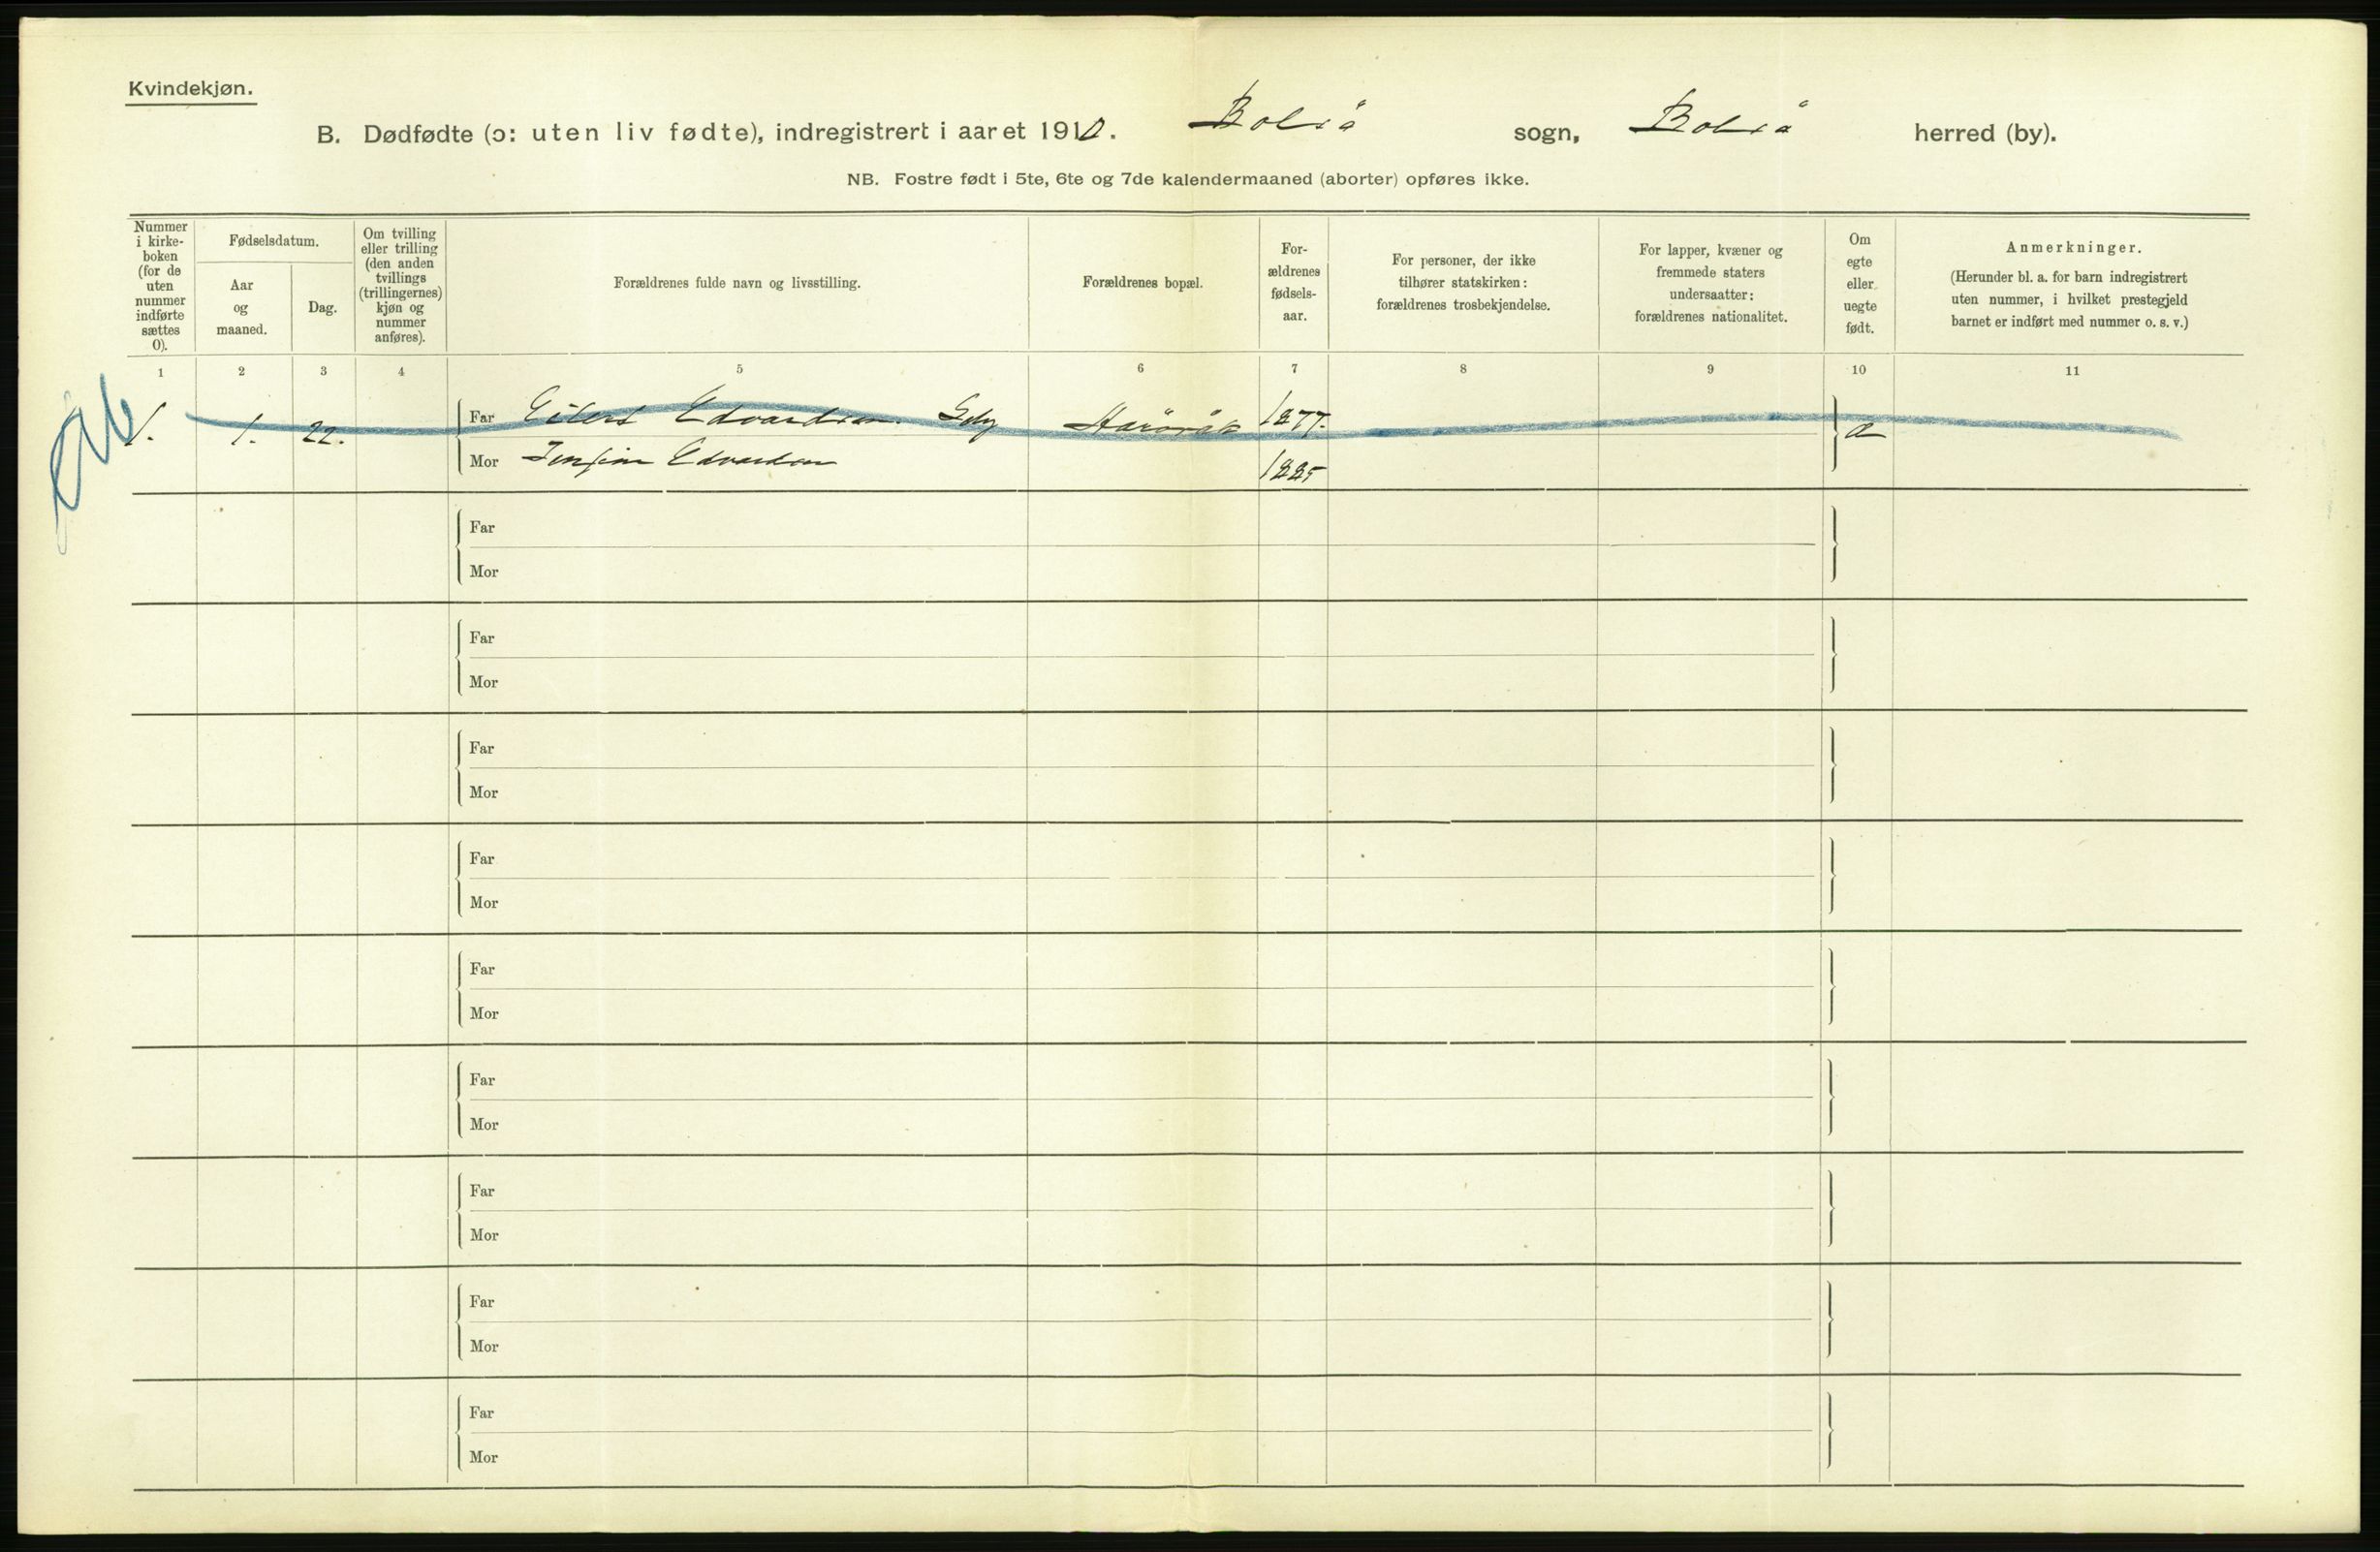 Kvindekjøn.
B. Dødfødte (ɔ: uten liv fødte), indregistrert i aaret 1910. Bolsø sogn, Bolsø herred (by).
NB. Fostre født i 5te, 6te og 7de kalendermaaned (aborter) opføres ikke.
Nummer
i kirke-
boken
(for de
uten
nummer
indførte
sættes
0).
Fødselsdatum.
Aar
og
maaned.
Dag.
Om tvilling
eller trilling
(den anden
tvillings
(trillingernes)
kjøn og
nummer
anføres).
Forældrenes fulde navn og livsstilling.
Forældrenes bopæl.
For-
ældrenes
fødsels-
aar.
For personer, der ikke
tilhører statskirken:
forældrenes trosbekjendelse.
For lapper, kvæner og
fremmede staters
undersaatter:
forældrenes nationalitet.
Om
egte
eller
uegte
født.
Anmerkninger.
(Herunder bl. a. for barn indregistrert
uten nummer, i hvilket prestegjeld
barnet er indført med nummer o. s. v.)
1 2 3 4 5 6 7 8 9 10 11
1. 1. 22. Far Eilert Edvardsen 1877.
Mor Jensine Edvardsen 1885
Far
Mor
Far
Mor
Far
Mor
Far
Mor
Far
Mor
Far
Mor
Far
Mor
Far
Mor
Far
Mor